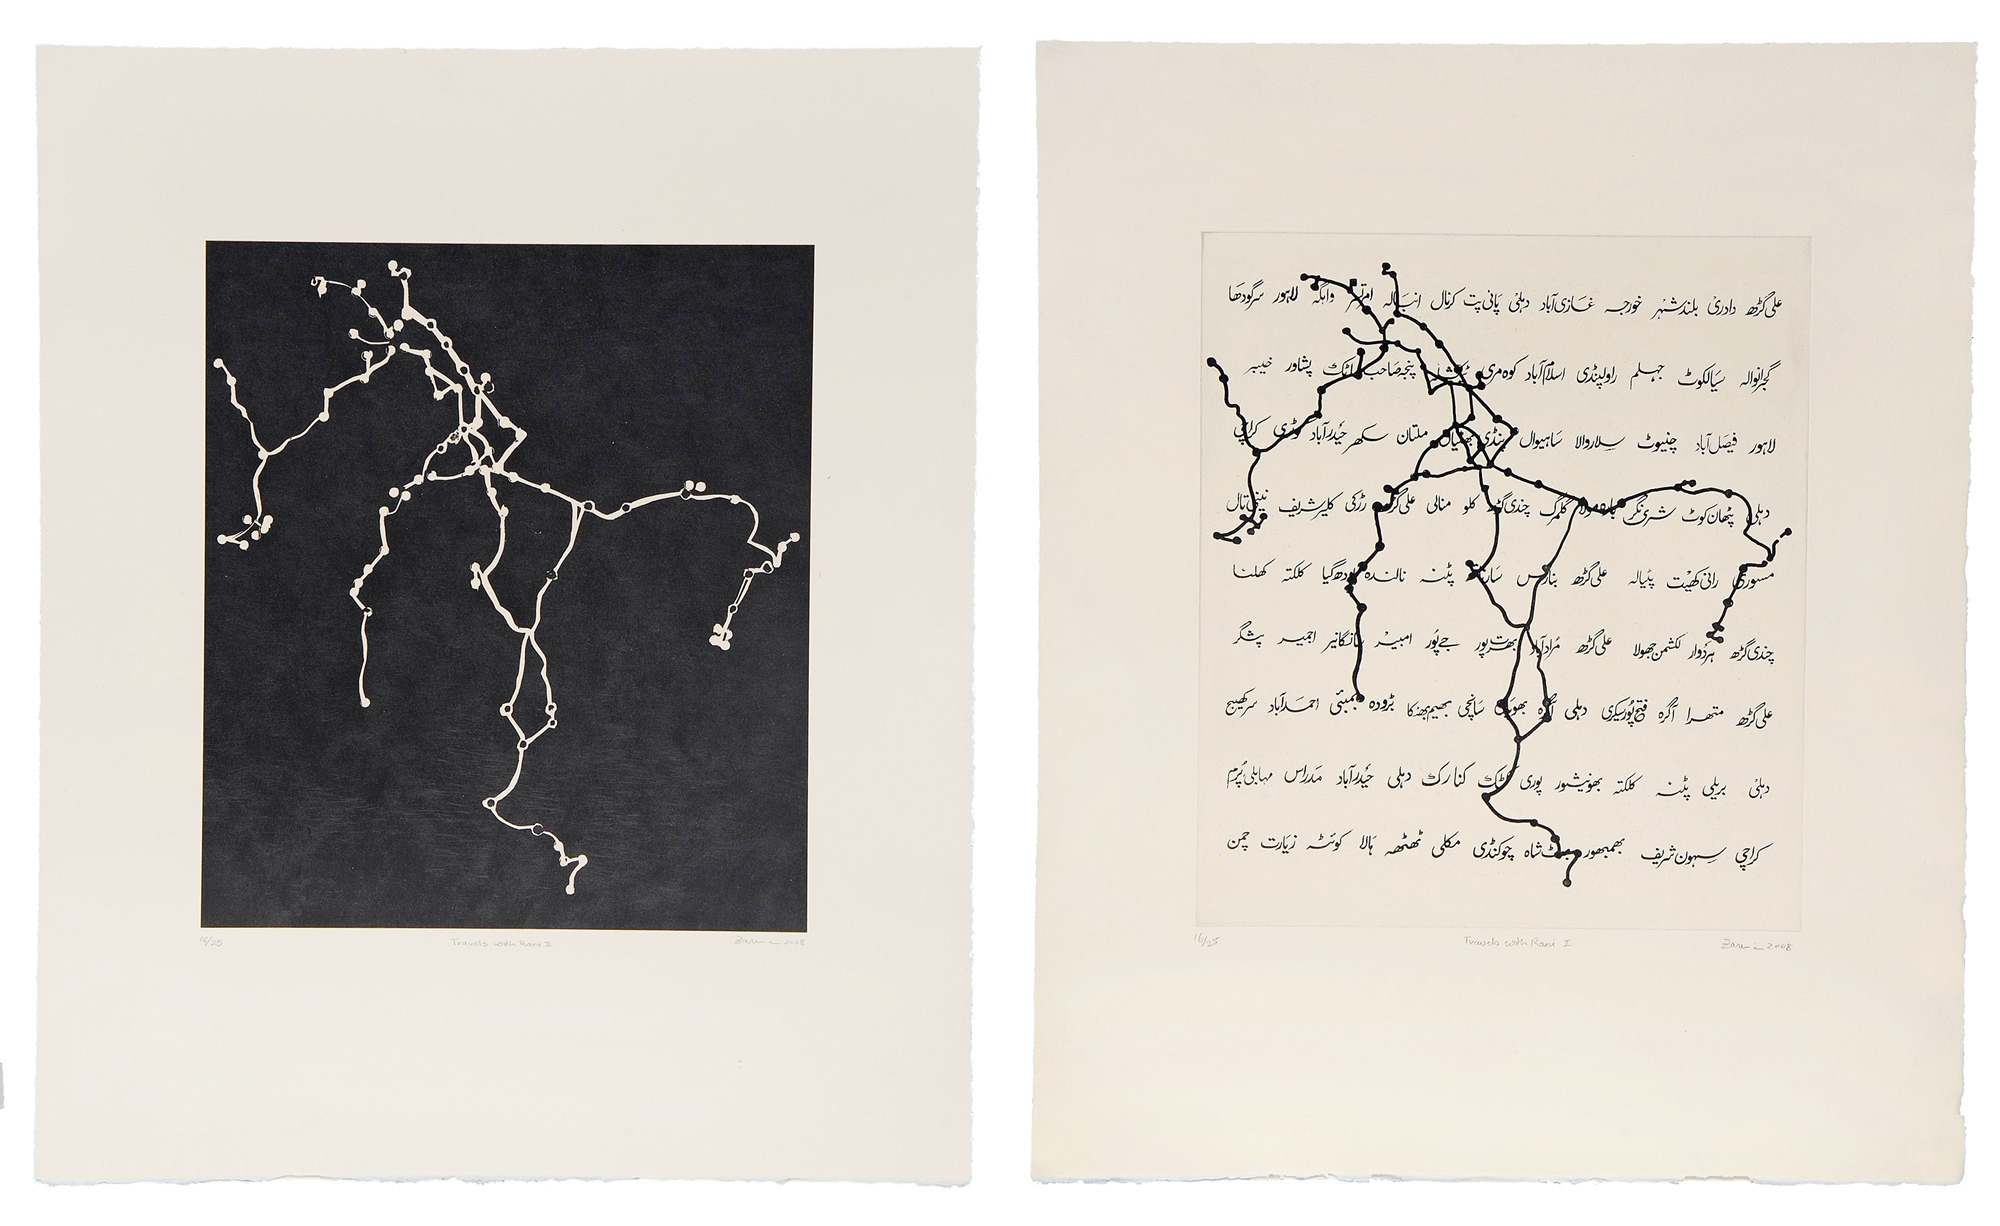 16/25 Travels with Rani II Zarina 2008
علی گڑھ دادری بلند شہر خورجہ غازی آباد دہلی پانی پت کرنال انبالہ امرتسر واہگہ لاہور سرگودھا
گجرانوالہ سیالکوٹ جہلم راولپنڈی اسلام آباد کوہ مری پنجہ صاحب اٹک پشاور خیبر
لاہور فیصل آباد چنیوٹ سلاروالا ساہیوال پنڈی بھٹیاں ملتان سکھر حیدرآباد کوٹری کراچی
دہلی پٹھان کوٹ شری نگر بارہ مولا گلمرگ چندی گڑھ کلو منالی علی گڑھ رڑکی کلیر شریف نینی تال
مسوری رانی کھیت پٹیالہ علی گڑھ بنارس سارناتھ پٹنہ نالندہ بودھ گیا کلکتہ کھلنا
چندی گڑھ ہردوار لکشمن جھولا علی گڑھ مراد آباد بھرت پور جے پور امبیر سانگانیر اجمیر پشگر
علی گڑھ متھرا آگرہ فتح پور سیکری دہلی آگرہ بھوپال سانچی بھیم بھٹکا بڑودہ بمبئی احمد آباد سرکھیج
دہلی بریلی پٹنہ کلکتہ بھونیشور پوری کٹک کنارک دہلی حیدرآباد مدراس مہابلی پرم
کراچی سہون شریف بھمبھور بھٹ شاہ چوکنڈی مکلی ٹھٹھہ ہالا کوئٹہ زیارت چمن
16/25 Travels with Rani I Zarina 2008